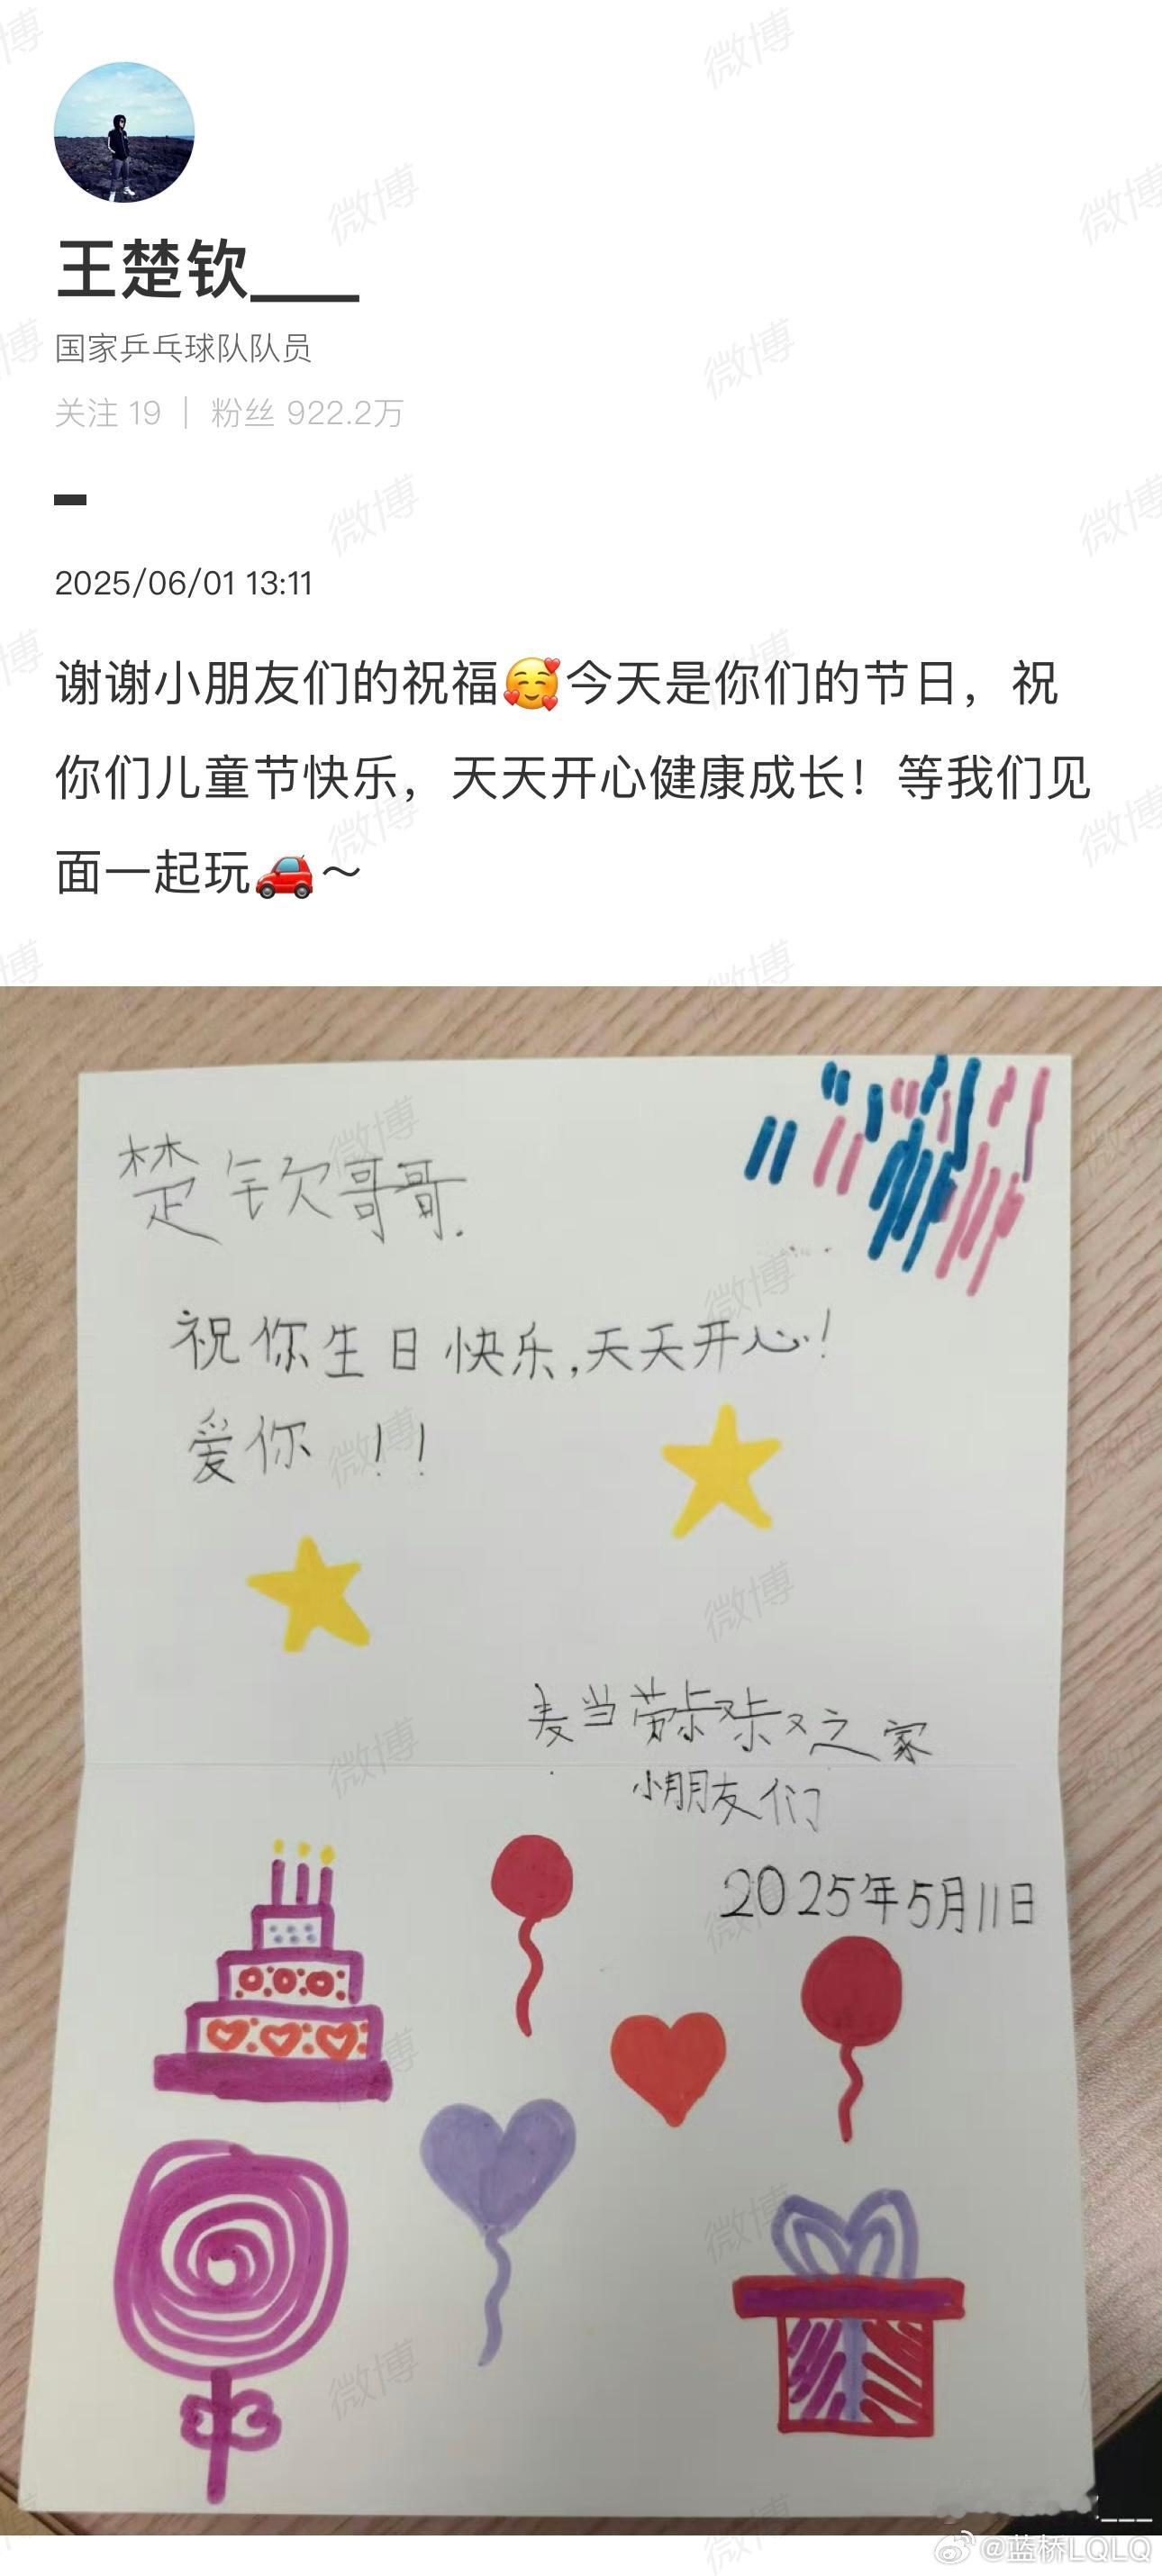 王楚钦____
国家乒乓球队队员
关注 19 | 粉丝 922.2万
2025/06/01 13:11
谢谢小朋友们的祝福🥰今天是你们的节日，祝
你们儿童节快乐，天天开心健康成长！等我们见
面一起玩🚗～
楚钦哥哥.
祝你生日快乐,天天开心!
爱你 !!
麦当劳叔叔之家
小朋友们
2025年5月11日
@蓝桥LQLQ
微博